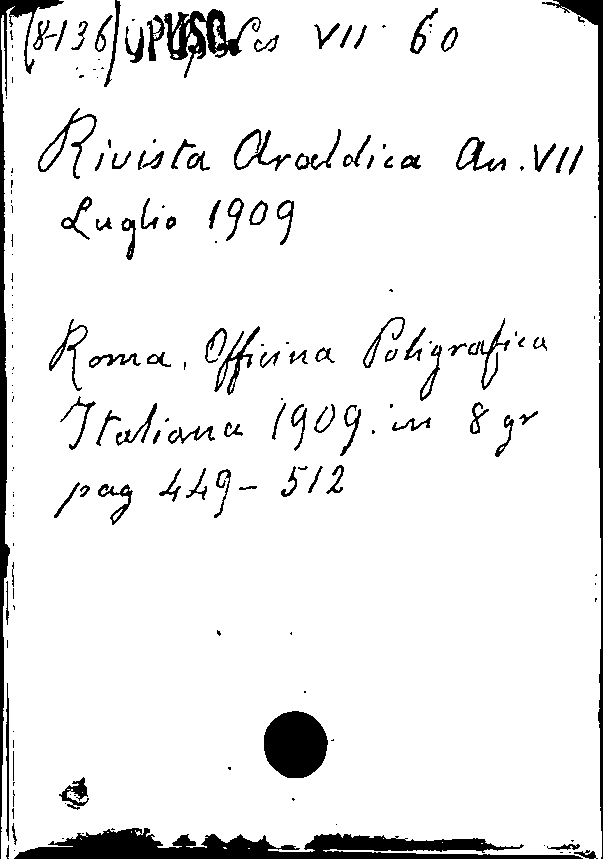 (8-136) OPUSC. Pes VII 60
Rivista Araldica An. VII
Luglio 1909
Roma, Officina Poligrafica
Italiana 1909. in 8 gr
pag 449-512